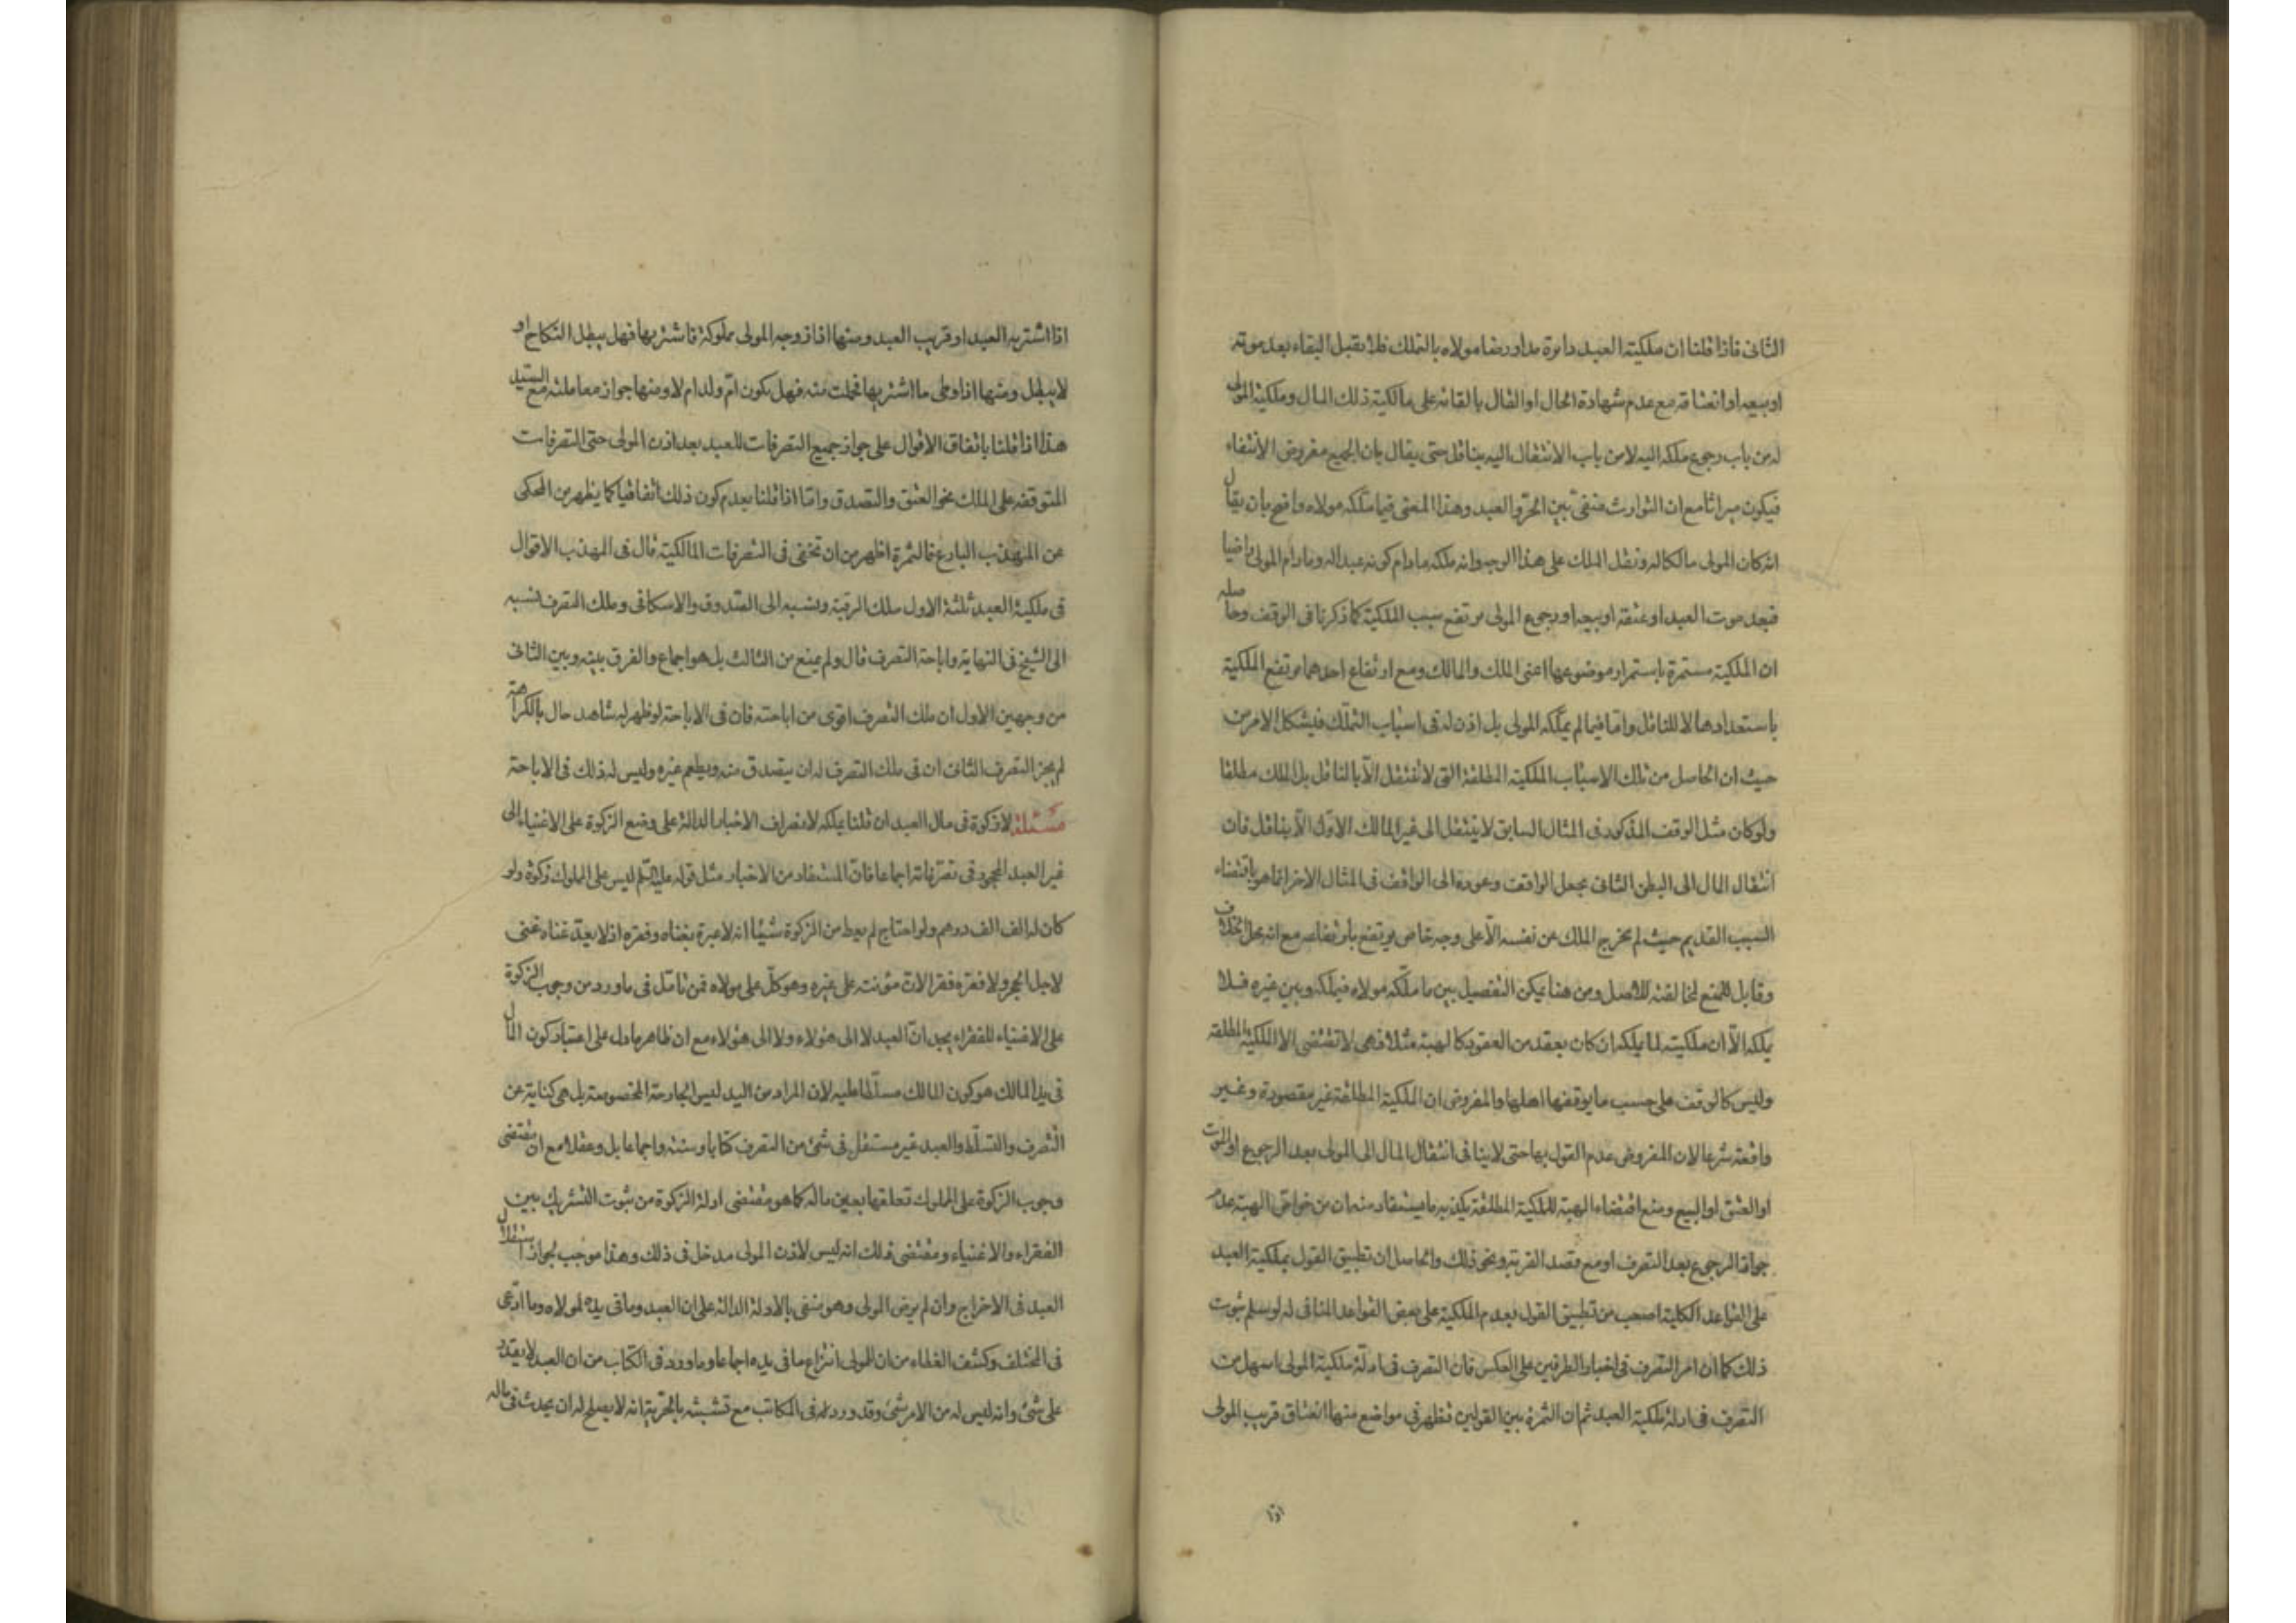 الثانى فاذا قلنا ان ملكية العبد دائرة مدار رضا مولاه بالتملك فلا يقبل البقاء بعد موته
او بيعه او انعتاقه مع عدم شهادة الحال او المقال بابقائه على مالكية ذلك المال وملكية المولى
له من باب رجوع ملكه اليه لا من باب الانتقال اليه بناقل حتى يقال بان الجميع مفروض الانتفاء
فيكون ميراثا مع ان التوارث منفى بين الحر والعبد وهذا المعنى فيما ملكه مولاه واضح بان يقال
انه كان المولى مالكا له ونقل الملك على هذا الوجه وانه ملكه مادام كونه عبدا له ومادام المولى راضيا
فبعد موت العبد او عتقه او بيعه او رجوع المولى يرتفع سبب الملكية كما ذكرنا فى الوقف وحاصله
ان الملكية مستمرة باستمرار موضوعها اعنى الملك والمالك ومع ارتفاع احدهما يرتفع الملكية
باستعدادها لا للناقل واما فيما لم يملكه المولى بل اذن له فى اسباب التملك فيشكل الامر من
حيث ان الحاصل من تلك الاسباب الملكية المطلقة التى لا تنتقل الا بالناقل بل الملك مطلقا
ولو كان مثل الوقف المذكور فى المثال السابق لا ينتقل الى غير المالك الاول الا بناقل فان
انتقال المال الى البطن الثانى بجعل الواقف وعوده الى الواقف فى المثال الاخر انما هو باقتضاء
السبب القديم حيث لم يخرج الملك عن نفسه الا على وجه خاص يرتفع بارتفاعه مع انه محل الخلاف
وقابل للمنع لمخالفته للاصل ومن هنا يمكن التفصيل بين ما ملكه مولاه فيملكه وبين غيره فلا
يملكه الا ان ملكيته لما يملكه ان كان بعقد من العقود كالهبة مثلا فهى لا تقتضى الا الملكية المطلقة
وليس كالوقف على حسب ما يوقفها اهلها والمفروض ان الملكية المطلقة غير مقصودة وغير
واقعة شرعا لان المفروض عدم القول بها حتى لا ينافى انتقال المال الى المولى بعد الرجوع او الموت
او العتق او البيع ومنع اقتضاء الهبة للملكية المطلقة يكذبه ما يستفاد منه ان من خواص الهبة عدم
جواز الرجوع بعد التصرف او مع قصد القربة ونحو ذلك والحاصل ان تطبيق القول بملكية العبد
على القواعد الكلية اصعب من تطبيق القول بعدم الملكية على بعض القواعد المنافى له لو سلم ثبوت
ذلك كما ان امر التصرف فى اخبار الطرفين على العكس فان التصرف فى ادلة ملكية المولى اسهل من
التصرف فى ادلة ملكية العبد ثم ان الثمرة بين القولين تظهر فى مواضع منها انعتاق قريب المولى
اذا
اذا اشتريه العبد او قريب العبد ومنها اذا زوجه المولى مملوكة فاشتريها فهل يبطل النكاح او
لا يبطل ومنها اذا وطى ما اشتريها فحملت منه فهل يكون ام ولد ام لا ومنها جواز معاملته مع السيد
هذا اذا قلنا باتفاق الاقوال على جواز جميع التصرفات للعبد بعد اذن المولى حتى التصرفات
المتوقفه على الملك نحو العتق والتصدق واما اذا قلنا بعدم كون ذلك اتفاقيا كما يظهر من المحكى
عن المهذب البارع فالثمرة اظهر من ان تخفى فى التصرفات المالكية قال فى المهذب الاقوال
فى ملكية العبد ثلثة الاول ملك الرقبة ونسبه الى الصدوق والاسكافى وملك التصرف نسبه
الى الشيخ فى النهاية واباحة التصرف قال ولم يمنع من الثالث بل هو اجماع والفرق بينه وبين الثانى
من وجهين الاول ان ملك التصرف اقوى من اباحته فان فى الاباحة لو ظهر له شاهد حال بالكراهة
لم يجز التصرف الثانى ان فى ملك التصرف له ان يتصدق منه ويطعم غيره وليس له ذلك فى الاباحة
مسئلة لا زكوة فى مال العبد ان قلنا بملكه لانصراف الاخبار الدالة على وضع الزكوة على الاغنياء الى
غير العبد المحجور فى تصرفاته اجماعا فان المستفاد من الاخبار مثل قوله عليه السلم ليس على المملوك زكوة ولو
كان له الف الف درهم ولو احتاج لم يعط من الزكوة شيئا انه لا عبرة بغناه وفقره اذ لا يعد غناه غنى
لاجل الحجر ولا فقره فقرا لان مؤنته على غيره وهو كل على مولاه فمن تامل فى ما ورد من وجوب الزكوة
على الاغنياء للفقراء يجد ان العبد لا الى هؤلاء ولا الى هؤلاء مع ان ظاهر ما دل على اعتبار كون المال
فى يد المالك هو كون المالك مسلطا عليه لان المراد من اليد ليس الجارحة المخصوصة بل هى كناية عن
التصرف والتسلط والعبد غير مستقل فى شئ من التصرف كتابا وسنة واجماعا بل وعقلا مع ان مقتضى
وجوب الزكوة على المملوك تعلقها بعين ماله كما هو مقتضى ادلة الزكوة من ثبوت التشريك بين
الفقراء والاغنياء ومقتضى ذلك انه ليس لاذن المولى مدخل فى ذلك وهذا موجب لجواز استقلال
العبد فى الاخراج وان لم يرض المولى وهو منفى بالادلة الدالة على ان العبد وما فى يده لمولاه وما ادعى
فى المختلف وكشف الغطاء من ان للمولى انتزاع ما فى يده اجماعا وما ورد فى الكتاب من ان العبد لا يقدر
على شئ وانه ليس له من الامر شئ وقد ورد فى المكاتب مع تشبثه بالحرية انه لا يصلح له ان يحدث فى ماله